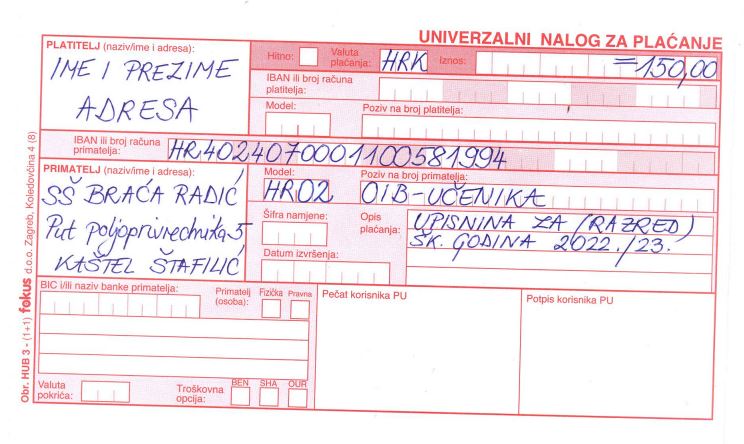 UNIVERZALNI NALOG ZA PLAĆANJE
PLATITELJ (naziv/ime i adresa):
IME I PREZIME
ADRESA
Hitno:
Valuta plaćanja: HRK
Iznos: =150,00
IBAN ili broj računa platitelja:
Model:
Poziv na broj platitelja:
IBAN ili broj računa primatelja: HR4024070001100581994
PRIMATELJ (naziv/ime i adresa):
SŠ BRAĆA RADIĆ
Put poljoprivrednika 5
KAŠTEL ŠTAFILIĆ
Model: HR02
Poziv na broj primatelja: OIB-UČENIKA
Šifra namjene:
Opis plaćanja: UPISNINA ZA (RAZRED)
ŠK. GODINA 2022./23.
Datum izvršenja:
BIC i/ili naziv banke primatelja:
Primatelj (osoba): Fizička Pravna
Valuta pokrića:
Troškovna opcija: BEN SHA OUR
Pečat korisnika PU
Potpis korisnika PU
Obr. HUB 3 - (1+1) fokus d.o.o. Zagreb, Koledovčina 4 (8)